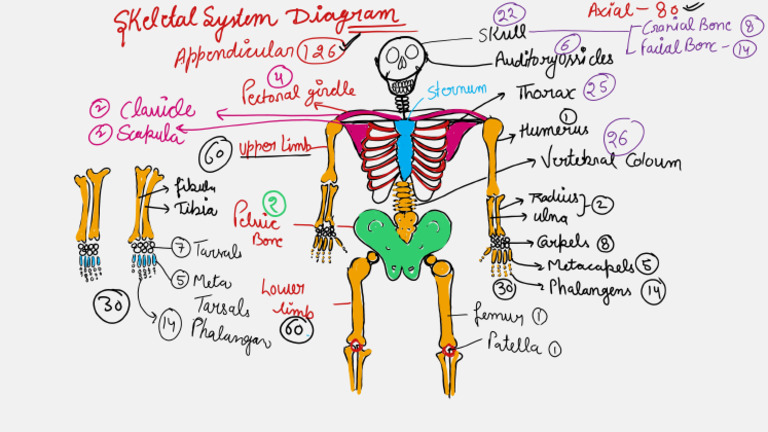 Skeletal System Diagram
Axial - 80
22
Skull
Cranial Bone 8
Facial Bone - 14
Appendicular 126
6
Auditory Ossicles
4
Pectoral girdle
Sternum
Thorax 25
2 Clavicle
2 Scapula
1
Humerus
26
60 upper limb
Vertebral Coloum
fibula
Tibia
Radius
ulna
2
2
Pelvic
Bone
7 Tarsals
Carpels 8
5 Meta
Tarsals
Metacapels 5
30
Phalangens 14
30
14 Phalangar
Lower
limb
60
femur 1
Patella 1